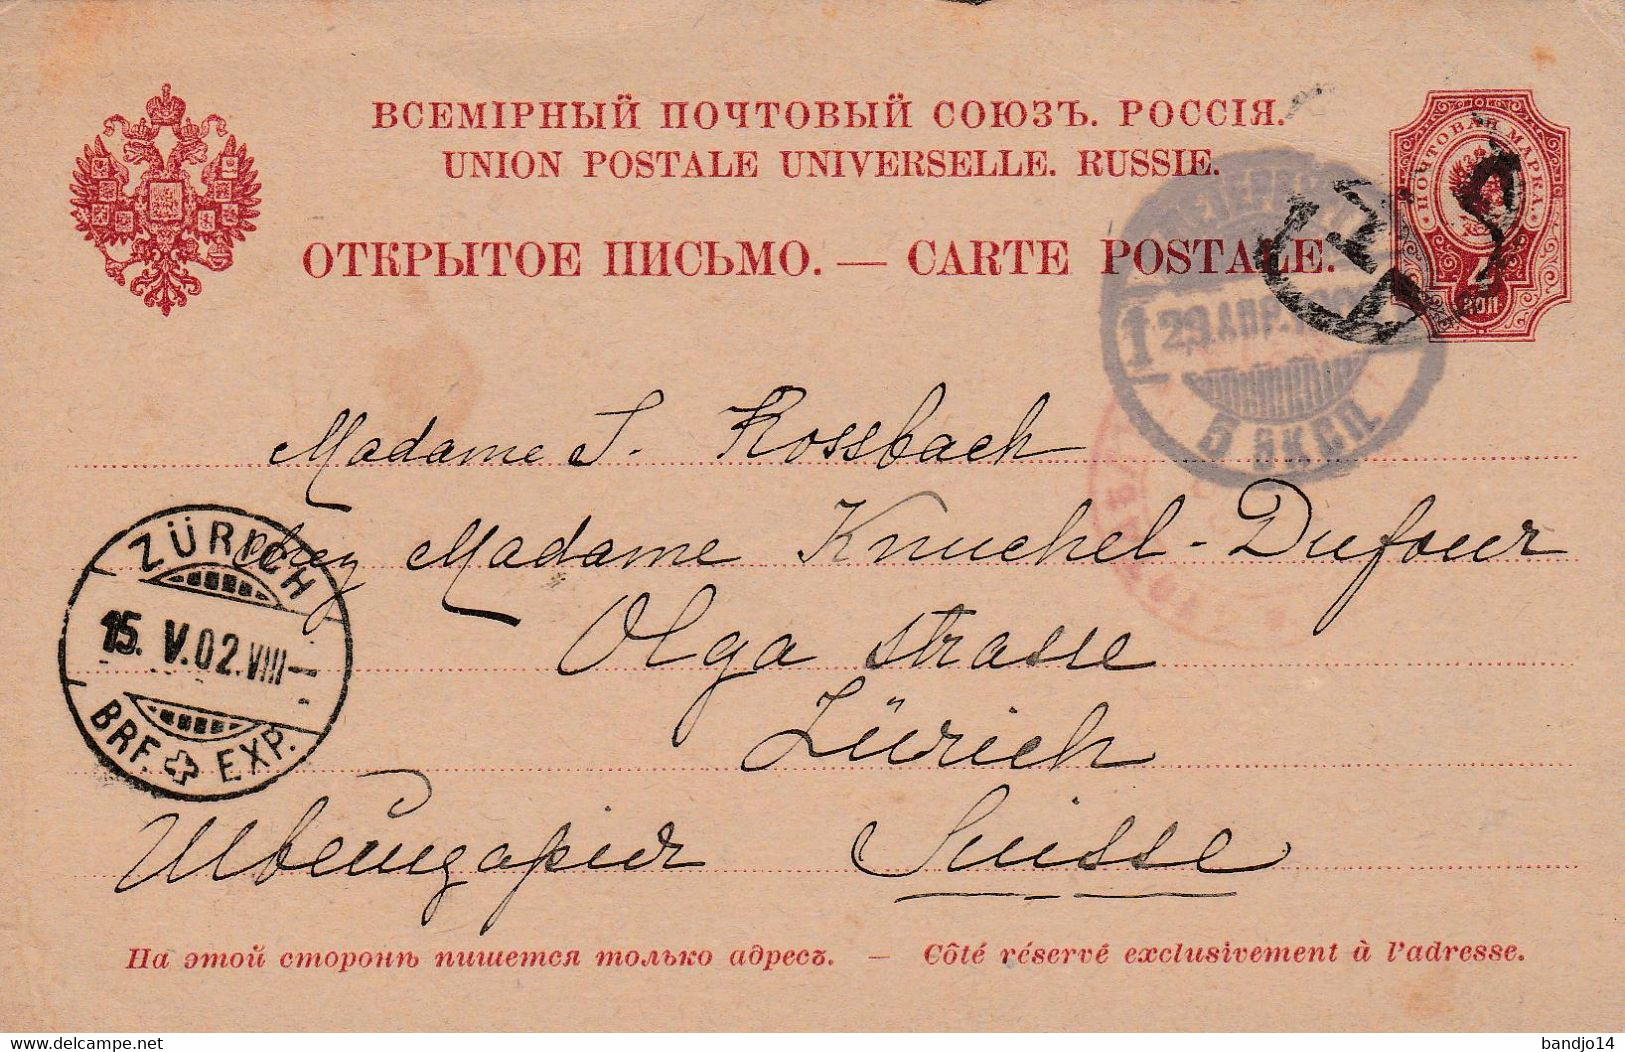 ВСЕМІРНЫЙ ПОЧТОВЫЙ СОЮЗЪ. РОССІЯ.
UNION POSTALE UNIVERSELLE. RUSSIE.
ОТКРЫТОЕ ПИСЬМО. — CARTE POSTALE.
ПОЧТОВАЯ МАРКА
КОП.
1
29 АПР.
5 ЭКСП.
Madame S. Rossbach
chez Madame Knuchel-Dufour
Olga strasse
Zürich
Швейцарія Suisse
ZÜRICH
15. V. 02. VIII—
BRF. EXP.
На этой сторонѣ пишется только адресъ. — Côté réservé exclusivement à l'adresse.
bandjo14